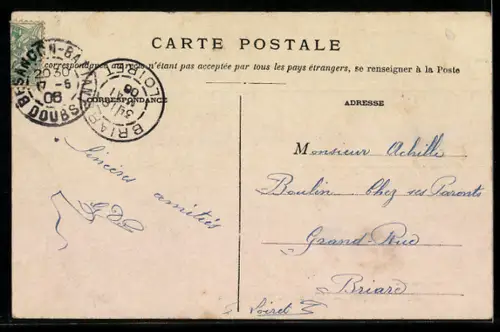 CARTE POSTALE
correspondance au recto n'étant pas acceptée par tous les pays étrangers, se renseigner à la Poste
CORRESPONDANCE
ADRESSE
BESANÇON-BA
20 30
7 -6
06
DOUBS
BRIARE
LOIRET
06
Sincères amitiés
Monsieur Achille
Boulin Chez ses Parents
Grand-Rue
Briare
Loiret